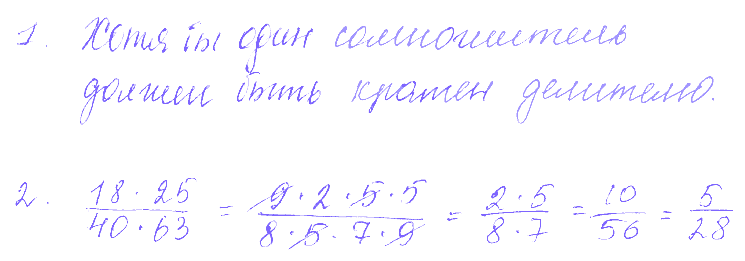 1. Хотя бы один сомножитель
должен быть кратен делителю.
2. 18 · 25 / 40 · 63 = 9 · 2 · 5 · 5 / 8 · 5 · 7 · 9 = 2 · 5 / 8 · 7 = 10 / 56 = 5 / 28